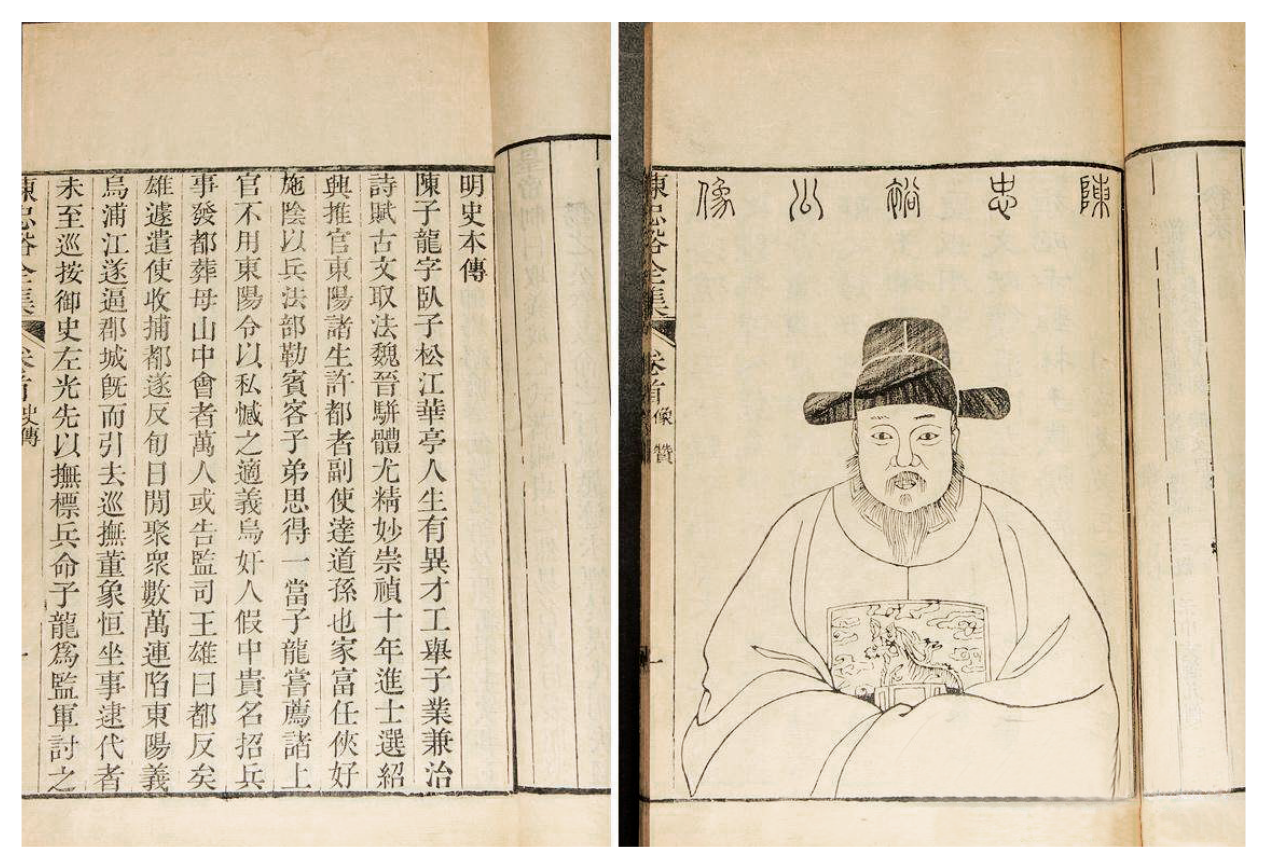 明史本傳
陳子龍字臥子松江華亭人生有異才工舉子業兼治
詩賦古文取法魏晉駢體尤精妙崇禎十年進士選紹
興推官東陽諸生許都者副使達道孫也家富任俠好
施陰以兵法部勒賓客子弟思得一當子龍嘗薦諸上
官不用東陽令以私憾之適義烏奸人假中貴名招兵
事發都葬母山中會者萬人或告監司王雄曰都反矣
雄遽遣使收捕都遂反旬日閒聚眾數萬連陷東陽義
烏浦江遂逼郡城旣而引去巡撫董象恒坐事逮代者
未至巡按御史左光先以撫標兵命子龍爲監軍討之
陳忠裕全集
卷首
史傳
一
陳忠裕公像
陳忠裕全集
卷首
像
贊
一